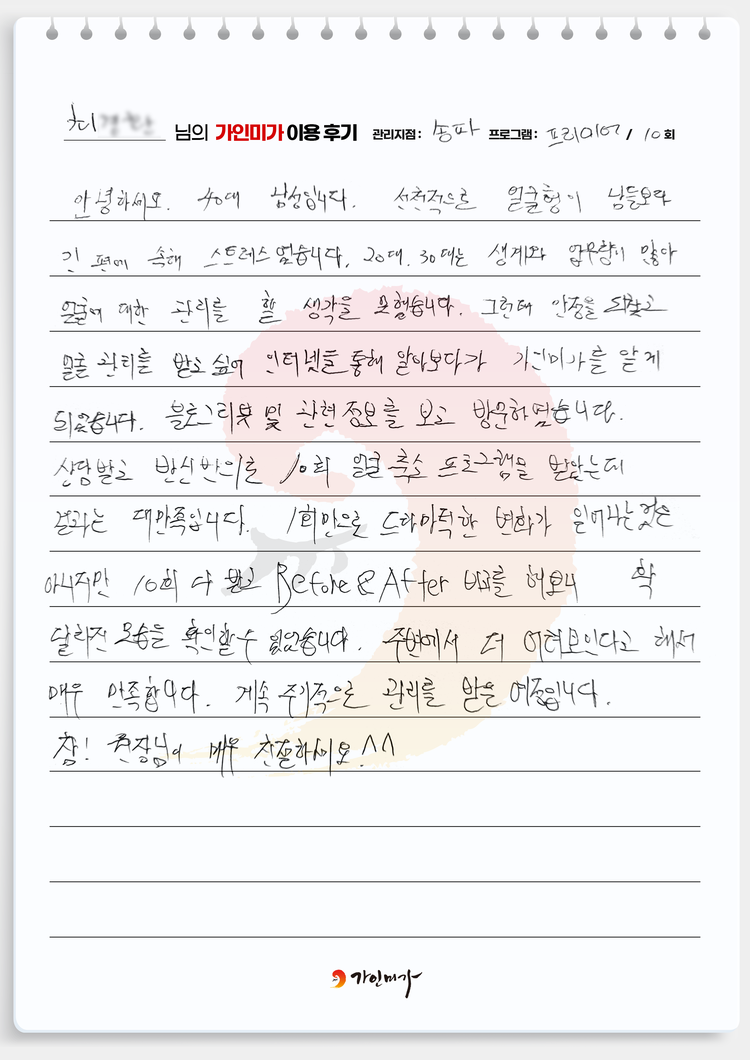 최 님의 가인미가 이용 후기 관리지점: 송파 프로그램: 프리미어 / 10회
안녕하세요. 40대 남성입니다. 선천적으로 얼굴형이 남들보다
긴 편에 속해 스트레스 였습니다. 20대, 30대는 생계와 업무량이 많아
얼굴에 대한 관리를 할 생각을 못했습니다. 그런데 안정을 되찾고
얼굴 관리를 받고 싶어 인터넷을 통해 알아보다가 가인미가를 알게
되었습니다. 블로그 리뷰 및 관련 정보를 보고 방문하였습니다.
상담받고 반신반의로 10회 얼굴 축소 프로그램을 받았는데
결과는 대만족입니다. 1회만으로 드라마틱한 변화가 일어나는 것은
아니지만 10회 다 받고 Before & After 비교를 해보니 확
달라진 모습을 확인할 수 있었습니다. 주변에서 더 어려보인다고 해서
매우 만족합니다. 계속 주기적으로 관리를 받을 예정입니다.
참! 원장님이 매우 친절하세요. ^^
가인미가